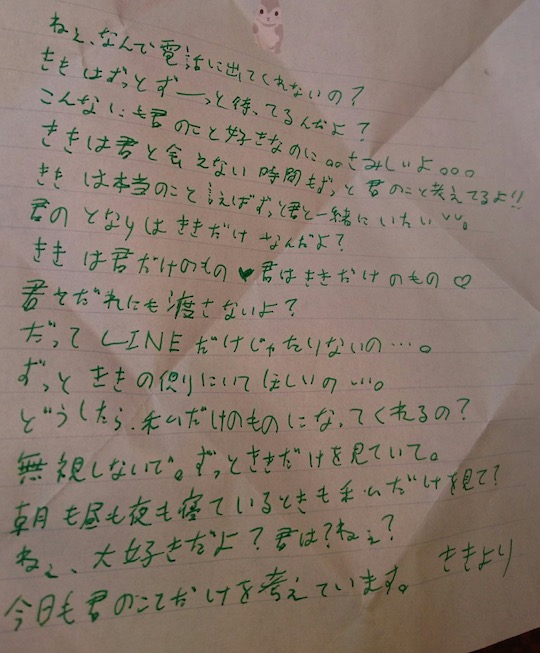 ねぇ、なんで電話に出てくれないの？
ききはずっとずーっと待ってるんだよ？
こんなにも君のこと好きなのに。。さみしいよ。。。
ききは君と会えない時間もずっと君のこと考えてるよ!!
ききは本当のこと言えばずっと君と一緒にいたい、、。
君のとなりはききだけなんだよ？
ききは君だけのもの♥君はききだけのもの♡
君をだれにも渡さないよ？
だってLINEだけじゃたりないの…。
ずっとききの側りにいてほしいの…。
どうしたら、私だけのものになってくれるの？
無視しないで。ずっとききだけを見ていて。
朝も昼も夜も寝ているときも私だけを見て？
ねぇ、大好きだよ？君は？ねぇ？
今日も君のことだけを考えています。
ききより